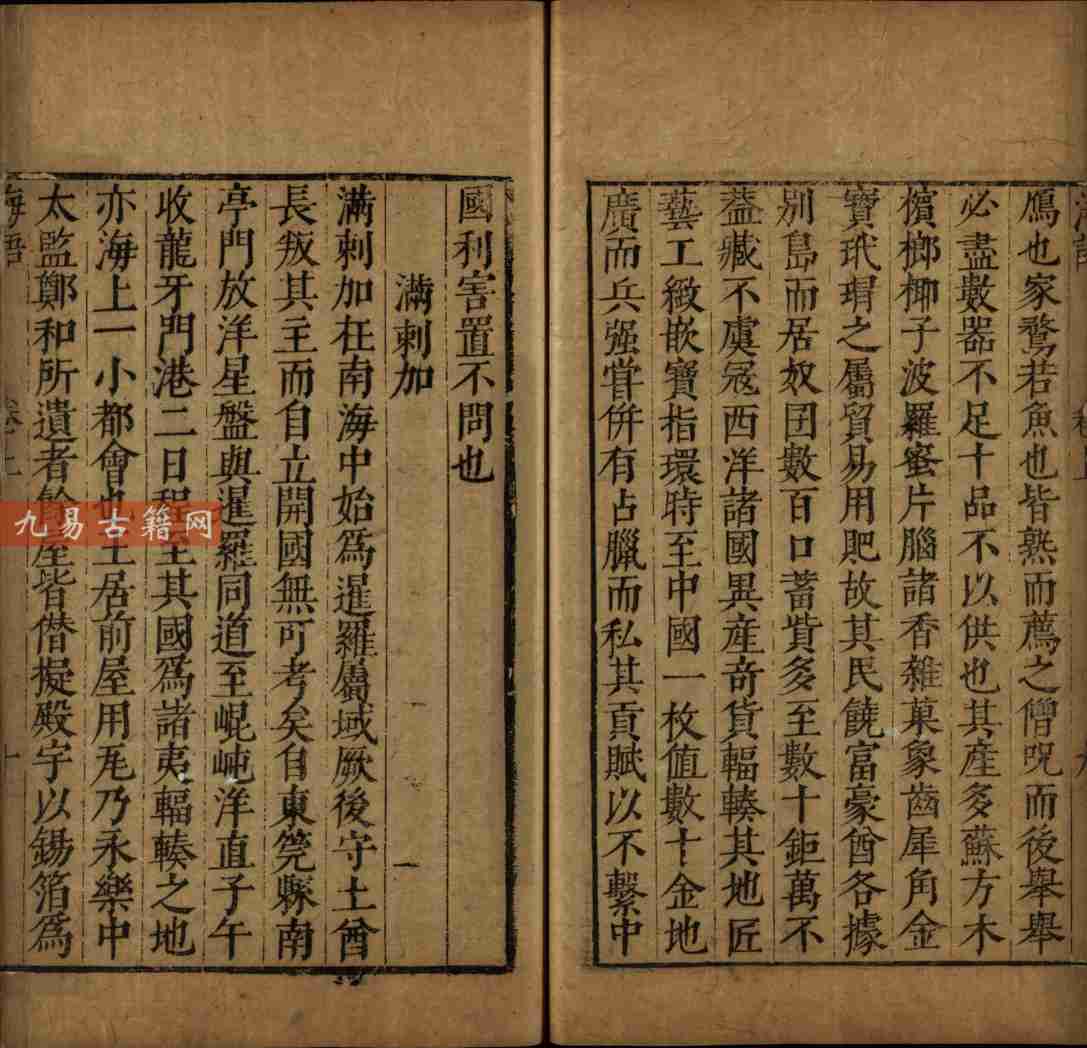 鴈也家鶩若魚也皆熟而薦之僧呪而後舉舉
必盡數器不足十品不以供也其產多蘇方木
檳榔椰子波羅蜜片腦諸香雜菓象齒犀角金
寶玳瑁之屬貿易用𧴩故其民饒富豪酋各據
别島而居奴囝數百口蓄貲多至數十鉅萬不
蓋藏不虞冦西洋諸國異產奇貨輻輳其地匠
藝工緻嵌寶指環時至中國一枚值數十金地
廣而兵强嘗併有占臘而私其貢賦以不繫中
國利害置不問也
滿剌加
滿剌加在南海中始為暹羅屬域厥後守土酋
長叛其主而自立開國無可考矣自東筦縣南
亭門放洋星盤與暹羅同道至崐屯洋直子午
收龍牙門港二日程至其國為諸夷輻輳之地
亦海上一小都會也王居前屋用瓦乃永樂中
太監鄭和所遺者餘屋皆僭擬殿宇以錫箔為
海語
卷上
十
九易古籍网